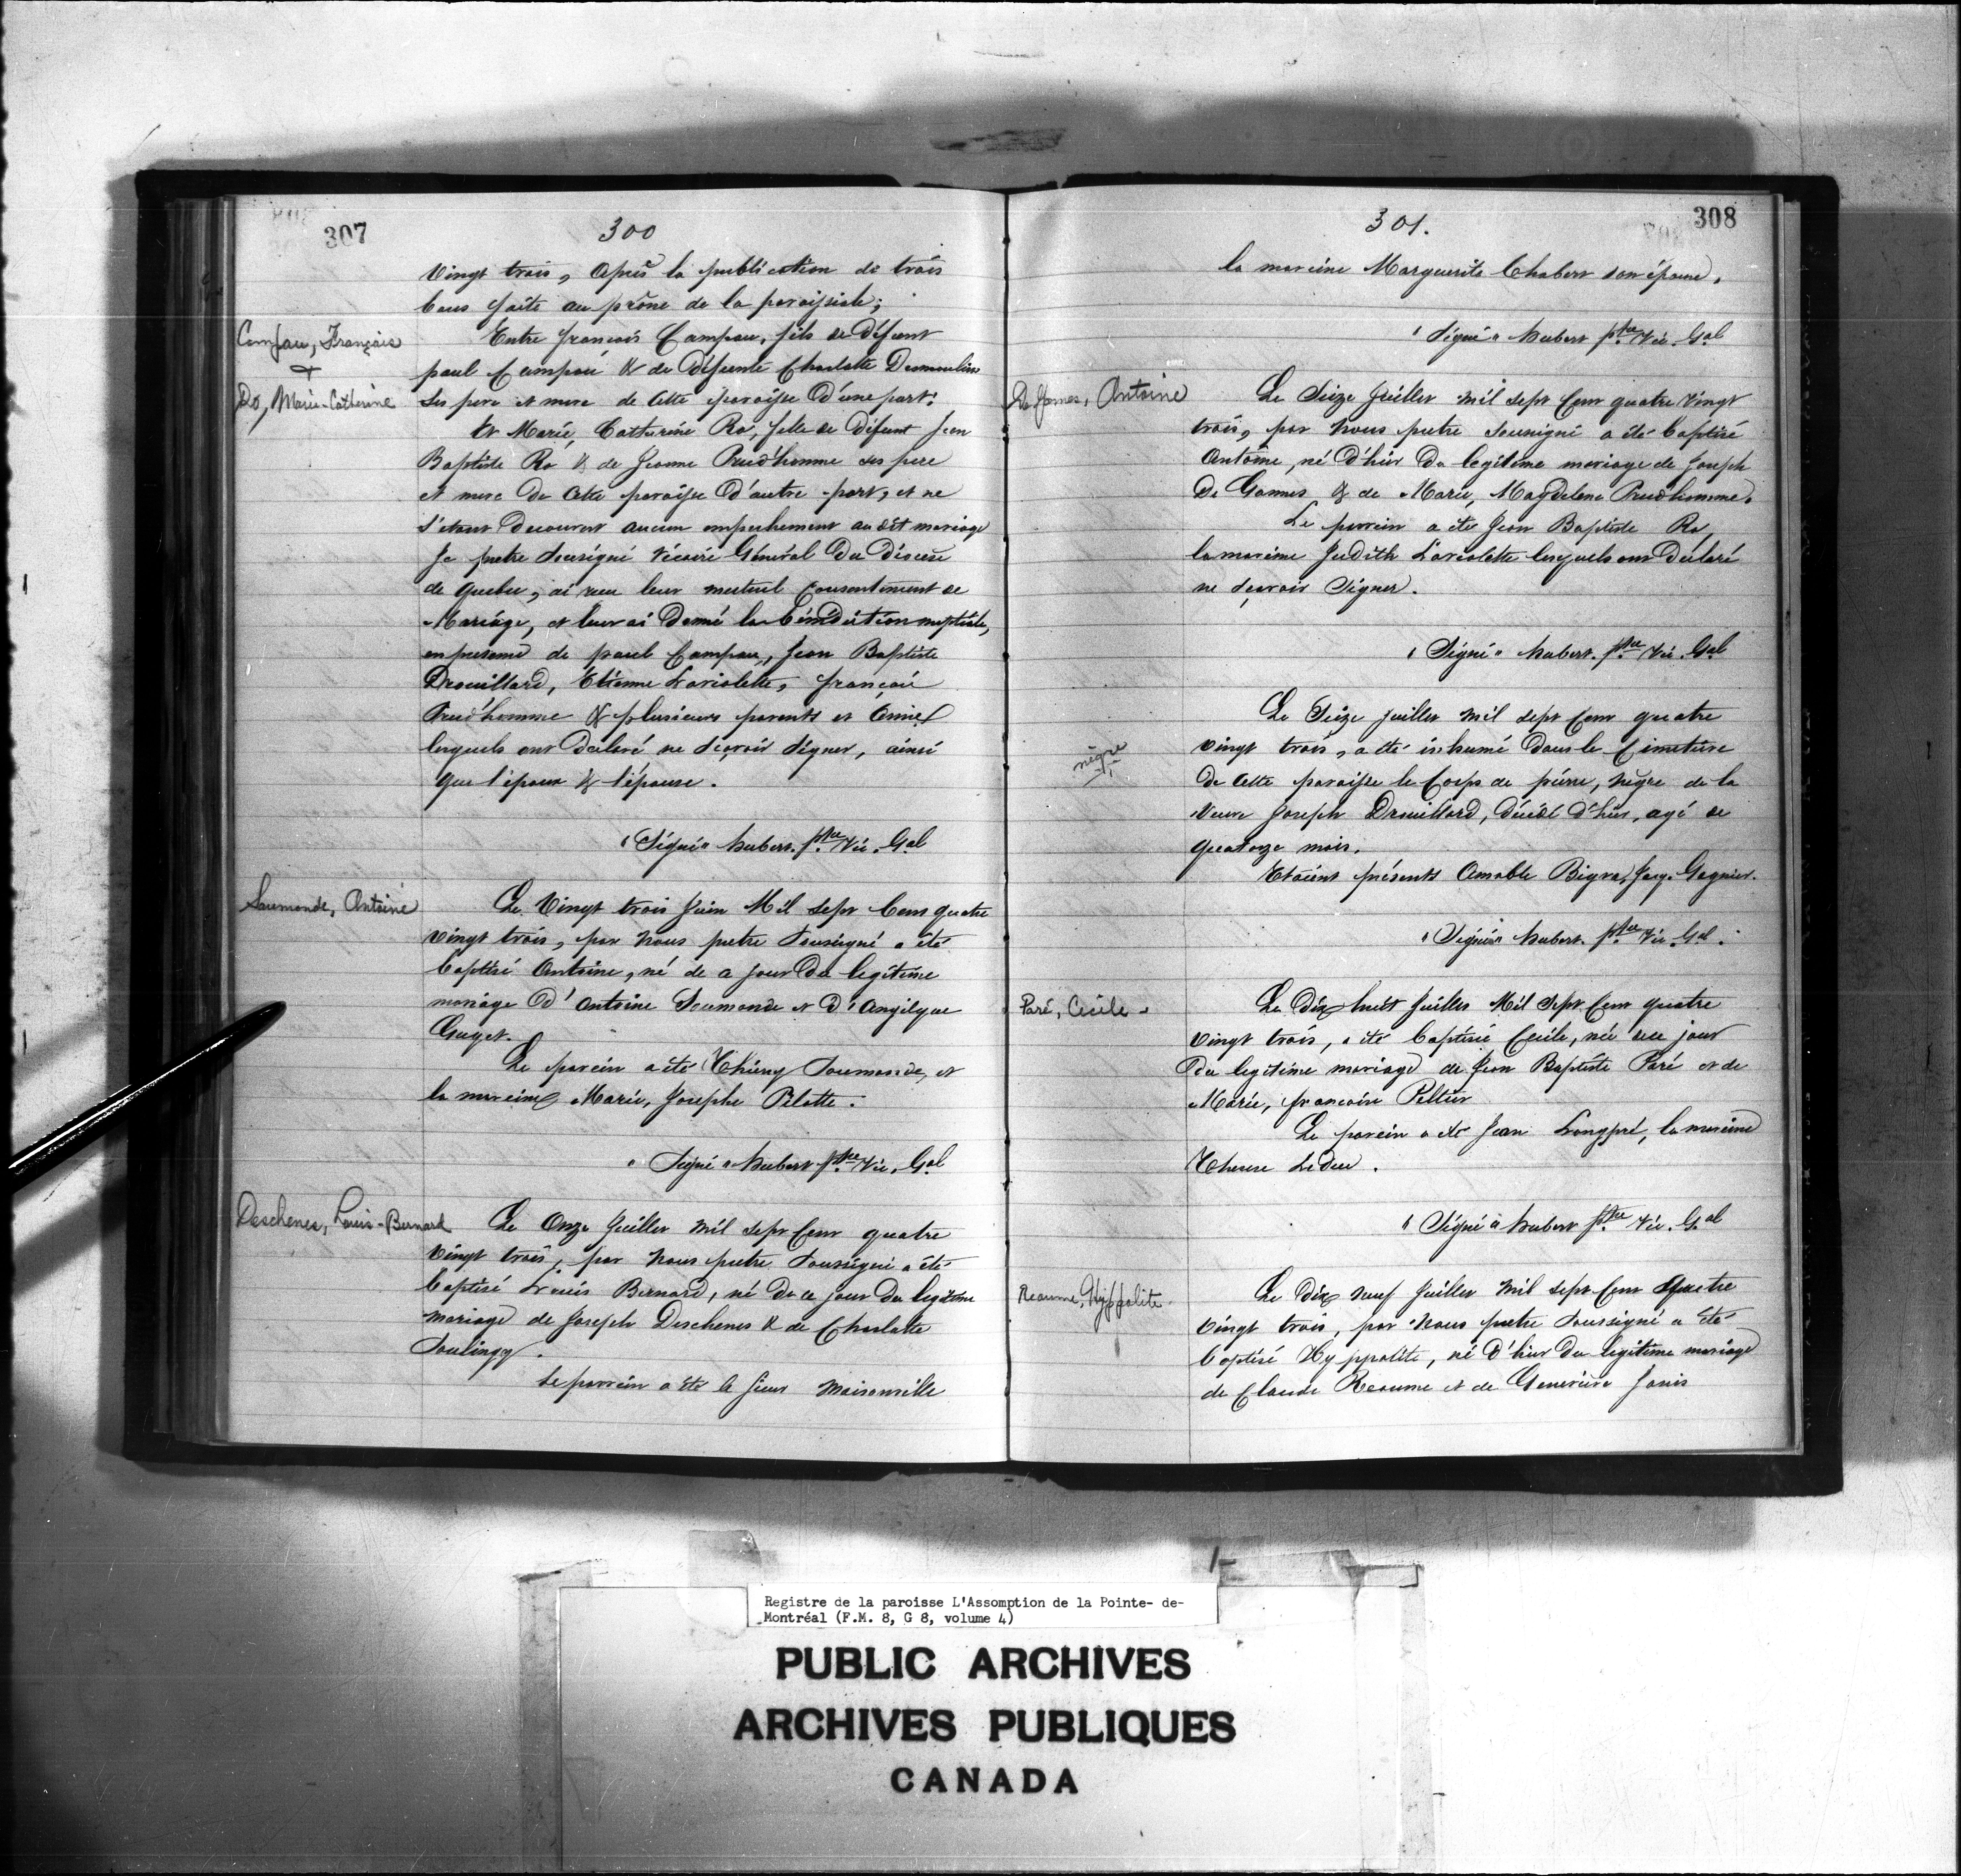 307
300
Vingt trois, après la publication de trois
bans faite au prône de la paroissiale;
Campau, François
+
Ro, Marie-Catherine
Entre françois Campau, fils de défunt
paul Campau & de Défunte Charlotte Desmoulins
ses pere et mere de cette paroisse D'une part:
Et Marie, Catherine Ro, fille de Défunt Jean
Baptiste Ro & de Jeanne Prud'homme ses pere
et mere De cette paroisse D'autre part, et ne
s'etant Decouvert aucun empechement au dit mariage
Je pretre Sousigné Vicaire Général Du Diocese
de quebec, ai recu leur mutuel Consentement de
Mariage, et leur ai Donné la bénédiction nuptiale,
en presence de paul Campau, Jean Baptiste
Drouillard, Etienne Laviolette, françois
Prud'homme & plusieurs parents et Amies
lesquels ont Déclaré ne sçavoir signer, ainsi
que l'époux & l'épouse.
"Signé" hubert. ptre Vic. Gal
Soumande, Antoine
Le Vingt trois Juin Mil Sept Cent quatre
vingt trois, par Nous pretre Sousigné a été
baptisé Antoine, né de ce jour Du legitime
mariage D'Antoine Soumande et D'Angilque
Guyet.
Le parein a été Thierry Soumande, et
la mareine Marie, Josephe Pilette.
"Signé" hubert ptre Vic. Gal
Deschenes, Louis-Bernard
Le Onze Juillet mil sept Cent quatre
Vingt trois, par Nous pretre Soussigné a été
baptisé Louis Bernard, né De ce jour Du legitime
mariage de Joseph Deschenes & de Charlotte
Soulingy.
Le parrein a été le sieur Maisonville
301.
308
la mareine Marguerite Chabert son épouse.
"Signé" hubert ptre Vic. Gal
De Gamus, Antoine
Le Seize Juillet mil sept Cent quatre Vingt
trois, par Nous pretre Sousigné a été baptisé
Antoine, né D'hier Du legitime mariage de Joseph
De Gamus & de Marie, Magdelene Prudhomme.
Le parrein a été Jean Baptiste Ro
la mareine Judith Laviolette lesquels ont Déclaré
ne sçavoir Signer.
"Signé" hubert. ptre Vic. Gal
nègre
Le Seize juillet mil sept Cent quatre
vingt trois, a été inhumé Dans le Cimetiere
De cette paroisse le Corps de pierre, nègre de la
Veuve Joseph Drouillard, décédé d'hier, agé de
quatorze mois.
Etoient présents Amable Bigra, Jacq. Gagnier.
"Signé" hubert. ptre Vic. Gal.
Paré, Cecile
Le Dix huit Juillet Mil Sept Cent quatre
Vingt trois, a été baptisée Cecile, née ce jour
Du legitime mariage de Jean Baptiste Paré et de
Marie, francoise Peltier
Le parein a été Jean Longpré, la mareine
Therese Leduc.
"Signé" hubert ptre Vic. Gal
Reaume, Hyppolite
Le Dix neuf Juillet Mil sept Cent Quatre
Vingt trois, par Nous pretre Soussigné a Eté
baptisé Hyppolite, né D'hier Du legitime mariage
de Claude Reaume et de Genevieve Janis
Registre de la paroisse L'Assomption de la Pointe- de-
Montréal (F.M. 8, G 8, volume 4)
PUBLIC ARCHIVES
ARCHIVES PUBLIQUES
CANADA